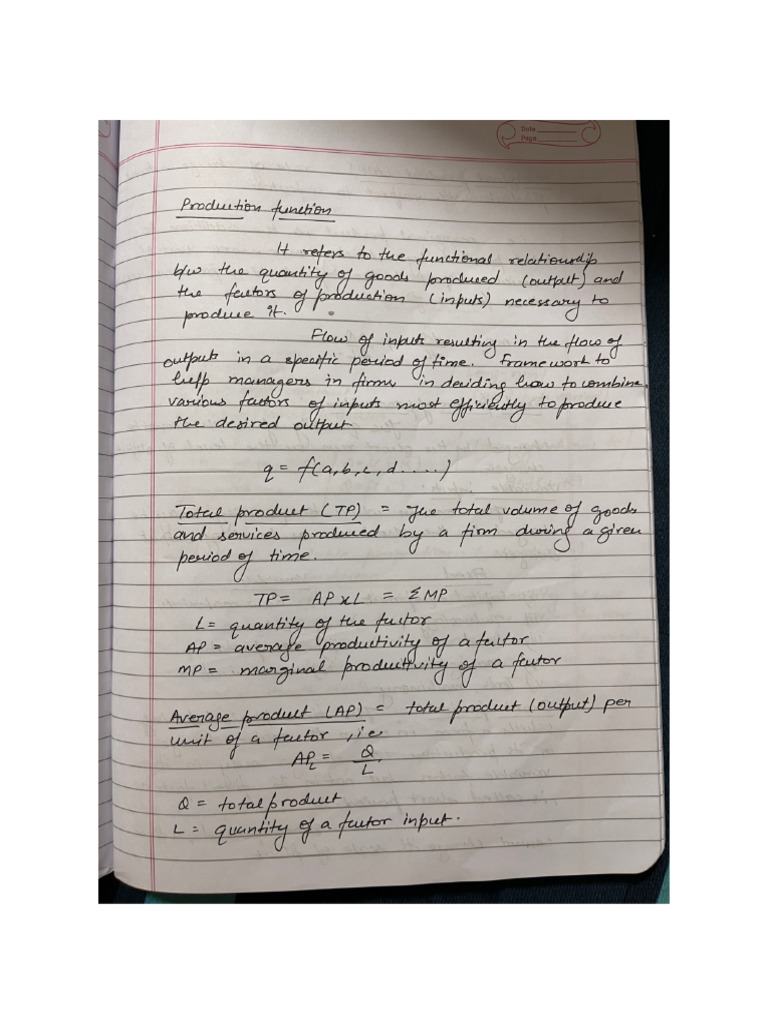 Date
Page
Production function
It refers to the functional relationship
b/w the quantity of goods produced (output) and
the factors of production (inputs) necessary to
produce it.
Flow of inputs resulting in the flow of
outputs in a specific period of time. Framework to
help managers in firms in deciding how to combine
various factors of inputs most efficiently to produce
the desired output
q = f(a,b,c,d.....)
Total product (TP) = The total volume of goods
and services produced by a firm during a given
period of time.
TP = AP x L = ΣMP
L = quantity of the factor
AP = average productivity of a factor
MP = marginal productivity of a factor
Average product (AP) = total product (output) per
unit of a factor, i.e
AP_L = Q/L
Q = total product
L = quantity of a factor input.